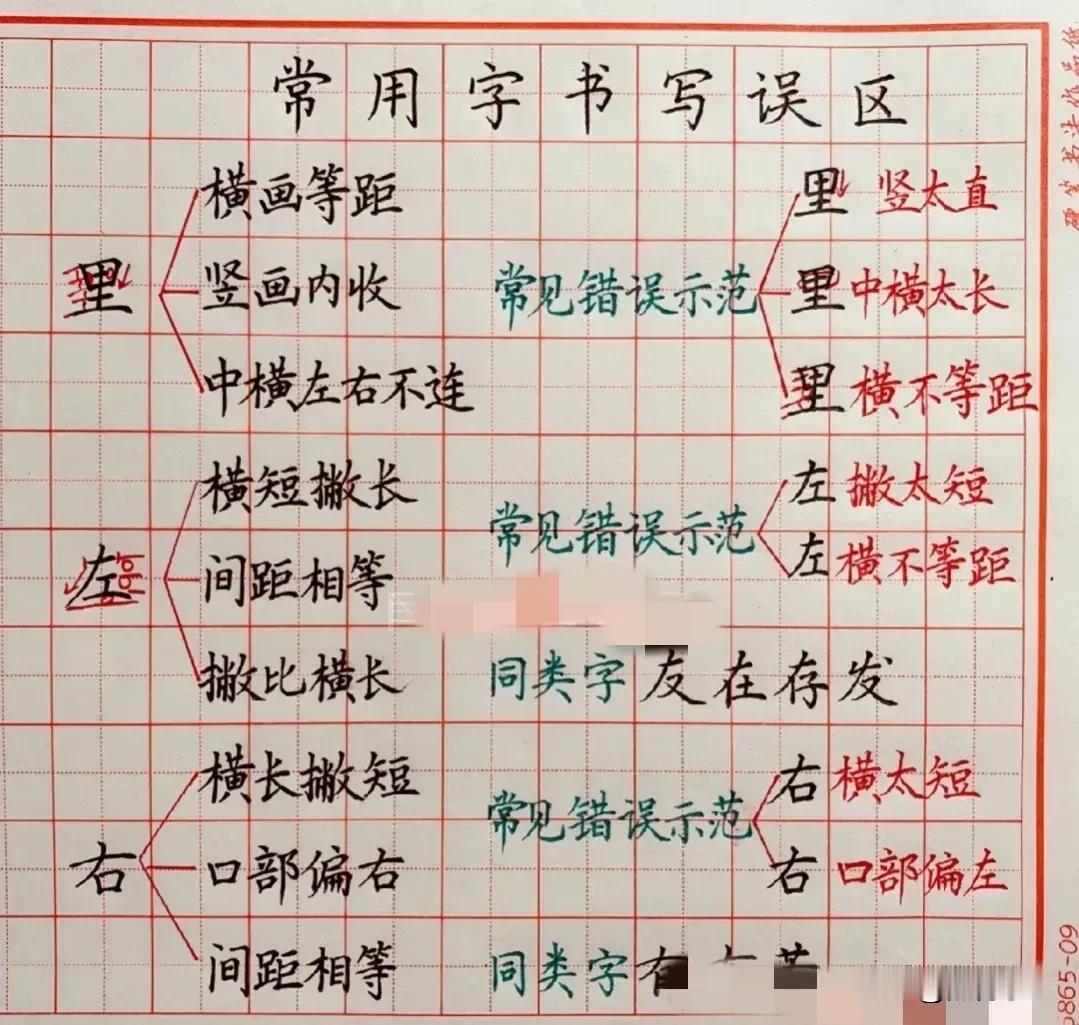 常用字书写误区
里
横画等距
竖画内收
中横左右不连
常见错误示范
里 竖太直
里 中横太长
里 横不等距
左
横短撇长
间距相等
撇比横长
常见错误示范
左 撇太短
左 横不等距
同类字 友在存发
右
横长撇短
口部偏右
间距相等
常见错误示范
右 横太短
右 口部偏左
同类字 有
硬笔书法作品纸
5865-09